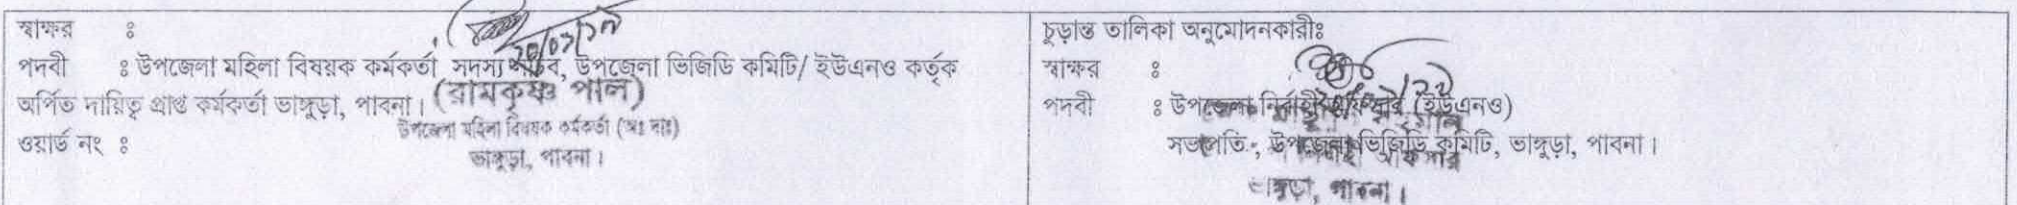 স্বাক্ষর :
পদবী : উপজেলা মহিলা বিষয়ক কর্মকর্তা, সদস্য সচিব, উপজেলা ভিজিডি কমিটি/ ইউএনও কর্তৃক
অর্পিত দায়িত্ব প্রাপ্ত কর্মকর্তা ভাঙ্গুড়া, পাবনা।
(রামকৃষ্ণ পাল)
উপজেলা মহিলা বিষয়ক কর্মকর্তা (অঃ দাঃ)
ভাঙ্গুড়া, পাবনা।
ওয়ার্ড নং :
চুড়ান্ত তালিকা অনুমোদনকারীঃ
স্বাক্ষর :
পদবী : উপজেলা নির্বাহী অফিসার (ইউএনও)
সভাপতি-, উপজেলা ভিজিডি কমিটি, ভাঙ্গুড়া, পাবনা।
ভাঙ্গুড়া, পাবনা।